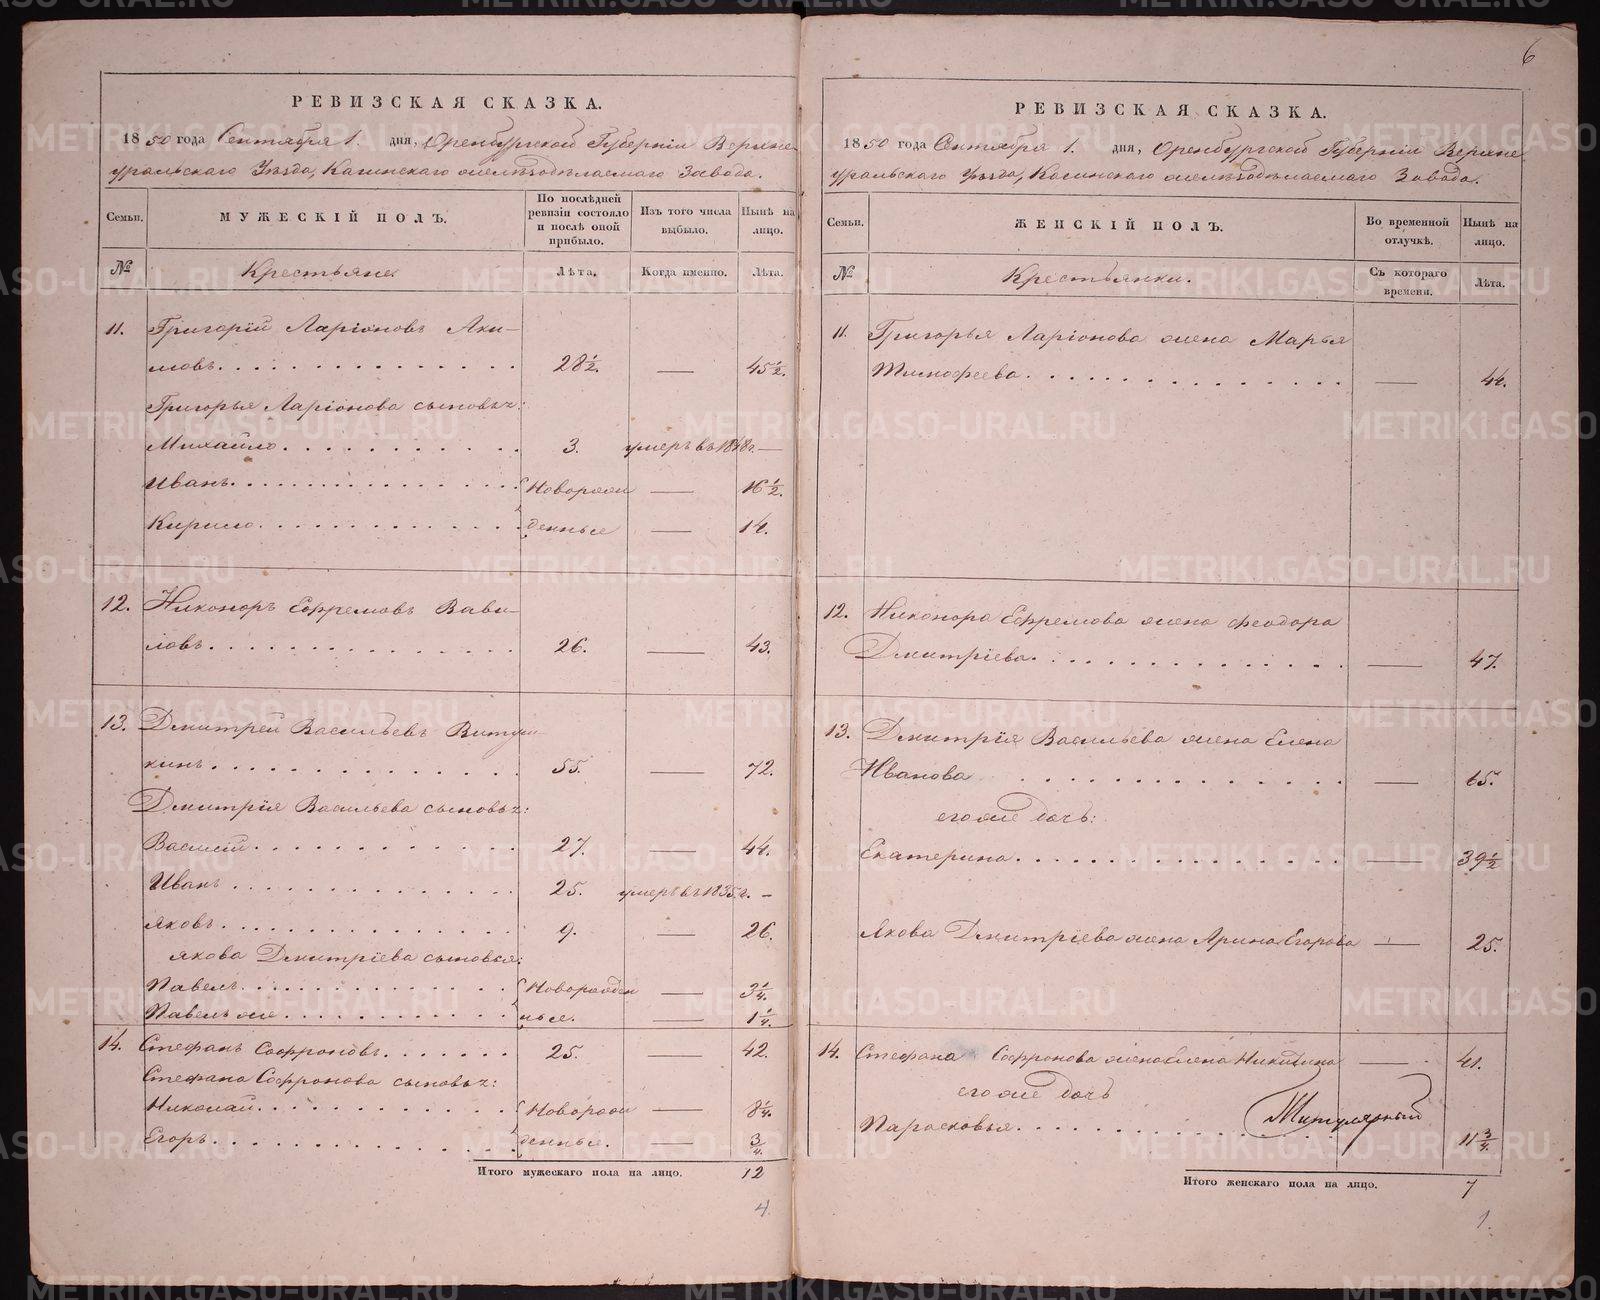 РЕВИЗСКАЯ СКАЗКА.
1850 года Сентября 1. дня, Оренбургской Губерніи Верхне
уральскаго Уѣзда, Кагинскаго желѣзодѣлаемаго Завода.
Семьи. МУЖЕСКІЙ ПОЛЪ. По послѣдней ревизіи состояло и послѣ оной прибыло. Изъ того числа выбыло. Нынѣ на лицо.
№ Крестьяне Лѣта. Когда именно. Лѣта.
11. Григорій Ларіоновъ Аки-
мовъ. 28½. — 45½.
Григорья Ларіонова сыновья:
Михайло. 3. умеръ въ 1848 г. —
Иванъ. Новорож — 16½.
Кирило. денные — 14.
12. Никоноръ Ефремовъ Вави-
ловъ. 26. — 43.
13. Дмитрей Васильевъ Витуш-
кинъ. 55. — 72.
Дмитрія Васильева сыновья:
Василій. 27. — 44.
Иванъ. 25. умеръ въ 1835 г. —
Яковъ. 9. — 26.
Якова Дмитріева сыновья:
Павелъ. Новорожден — 3¼.
Павелъ же. ные. — 1¼.
14. Стефанъ Софроновъ. 25. — 42.
Стефана Софронова сыновья:
Николай. Новорож — 8¼.
Егоръ. денные. — ¾.
Итого мужескаго пола на лицо. 12
4.
6
РЕВИЗСКАЯ СКАЗКА.
1850 года Сентября 1. дня, Оренбургской Губерніи Верхне
уральскаго Уѣзда, Кагинскаго желѣзодѣлаемаго Завода.
Семьи. ЖЕНСКІЙ ПОЛЪ. Во временной отлучкѣ. Нынѣ на лицо.
№ Крестьянки. Съ котораго времени. Лѣта.
11. Григорья Ларіонова жена Марья
Тимофеева. — 44.
12. Никонора Ефремова жена Феодора
Дмитріева. — 47.
13. Дмитрія Васильева жена Елена
Иванова — 65.
его же дочь:
Екатерина. — 39½
Якова Дмитріева жена Арина Егорова — 25.
14. Стефана Софронова жена Елена Никитина — 41.
его же дочь
Парасковья. 11¾.
Итого женскаго пола на лицо. 7
1.
METRIKI.GASO-URAL.RU